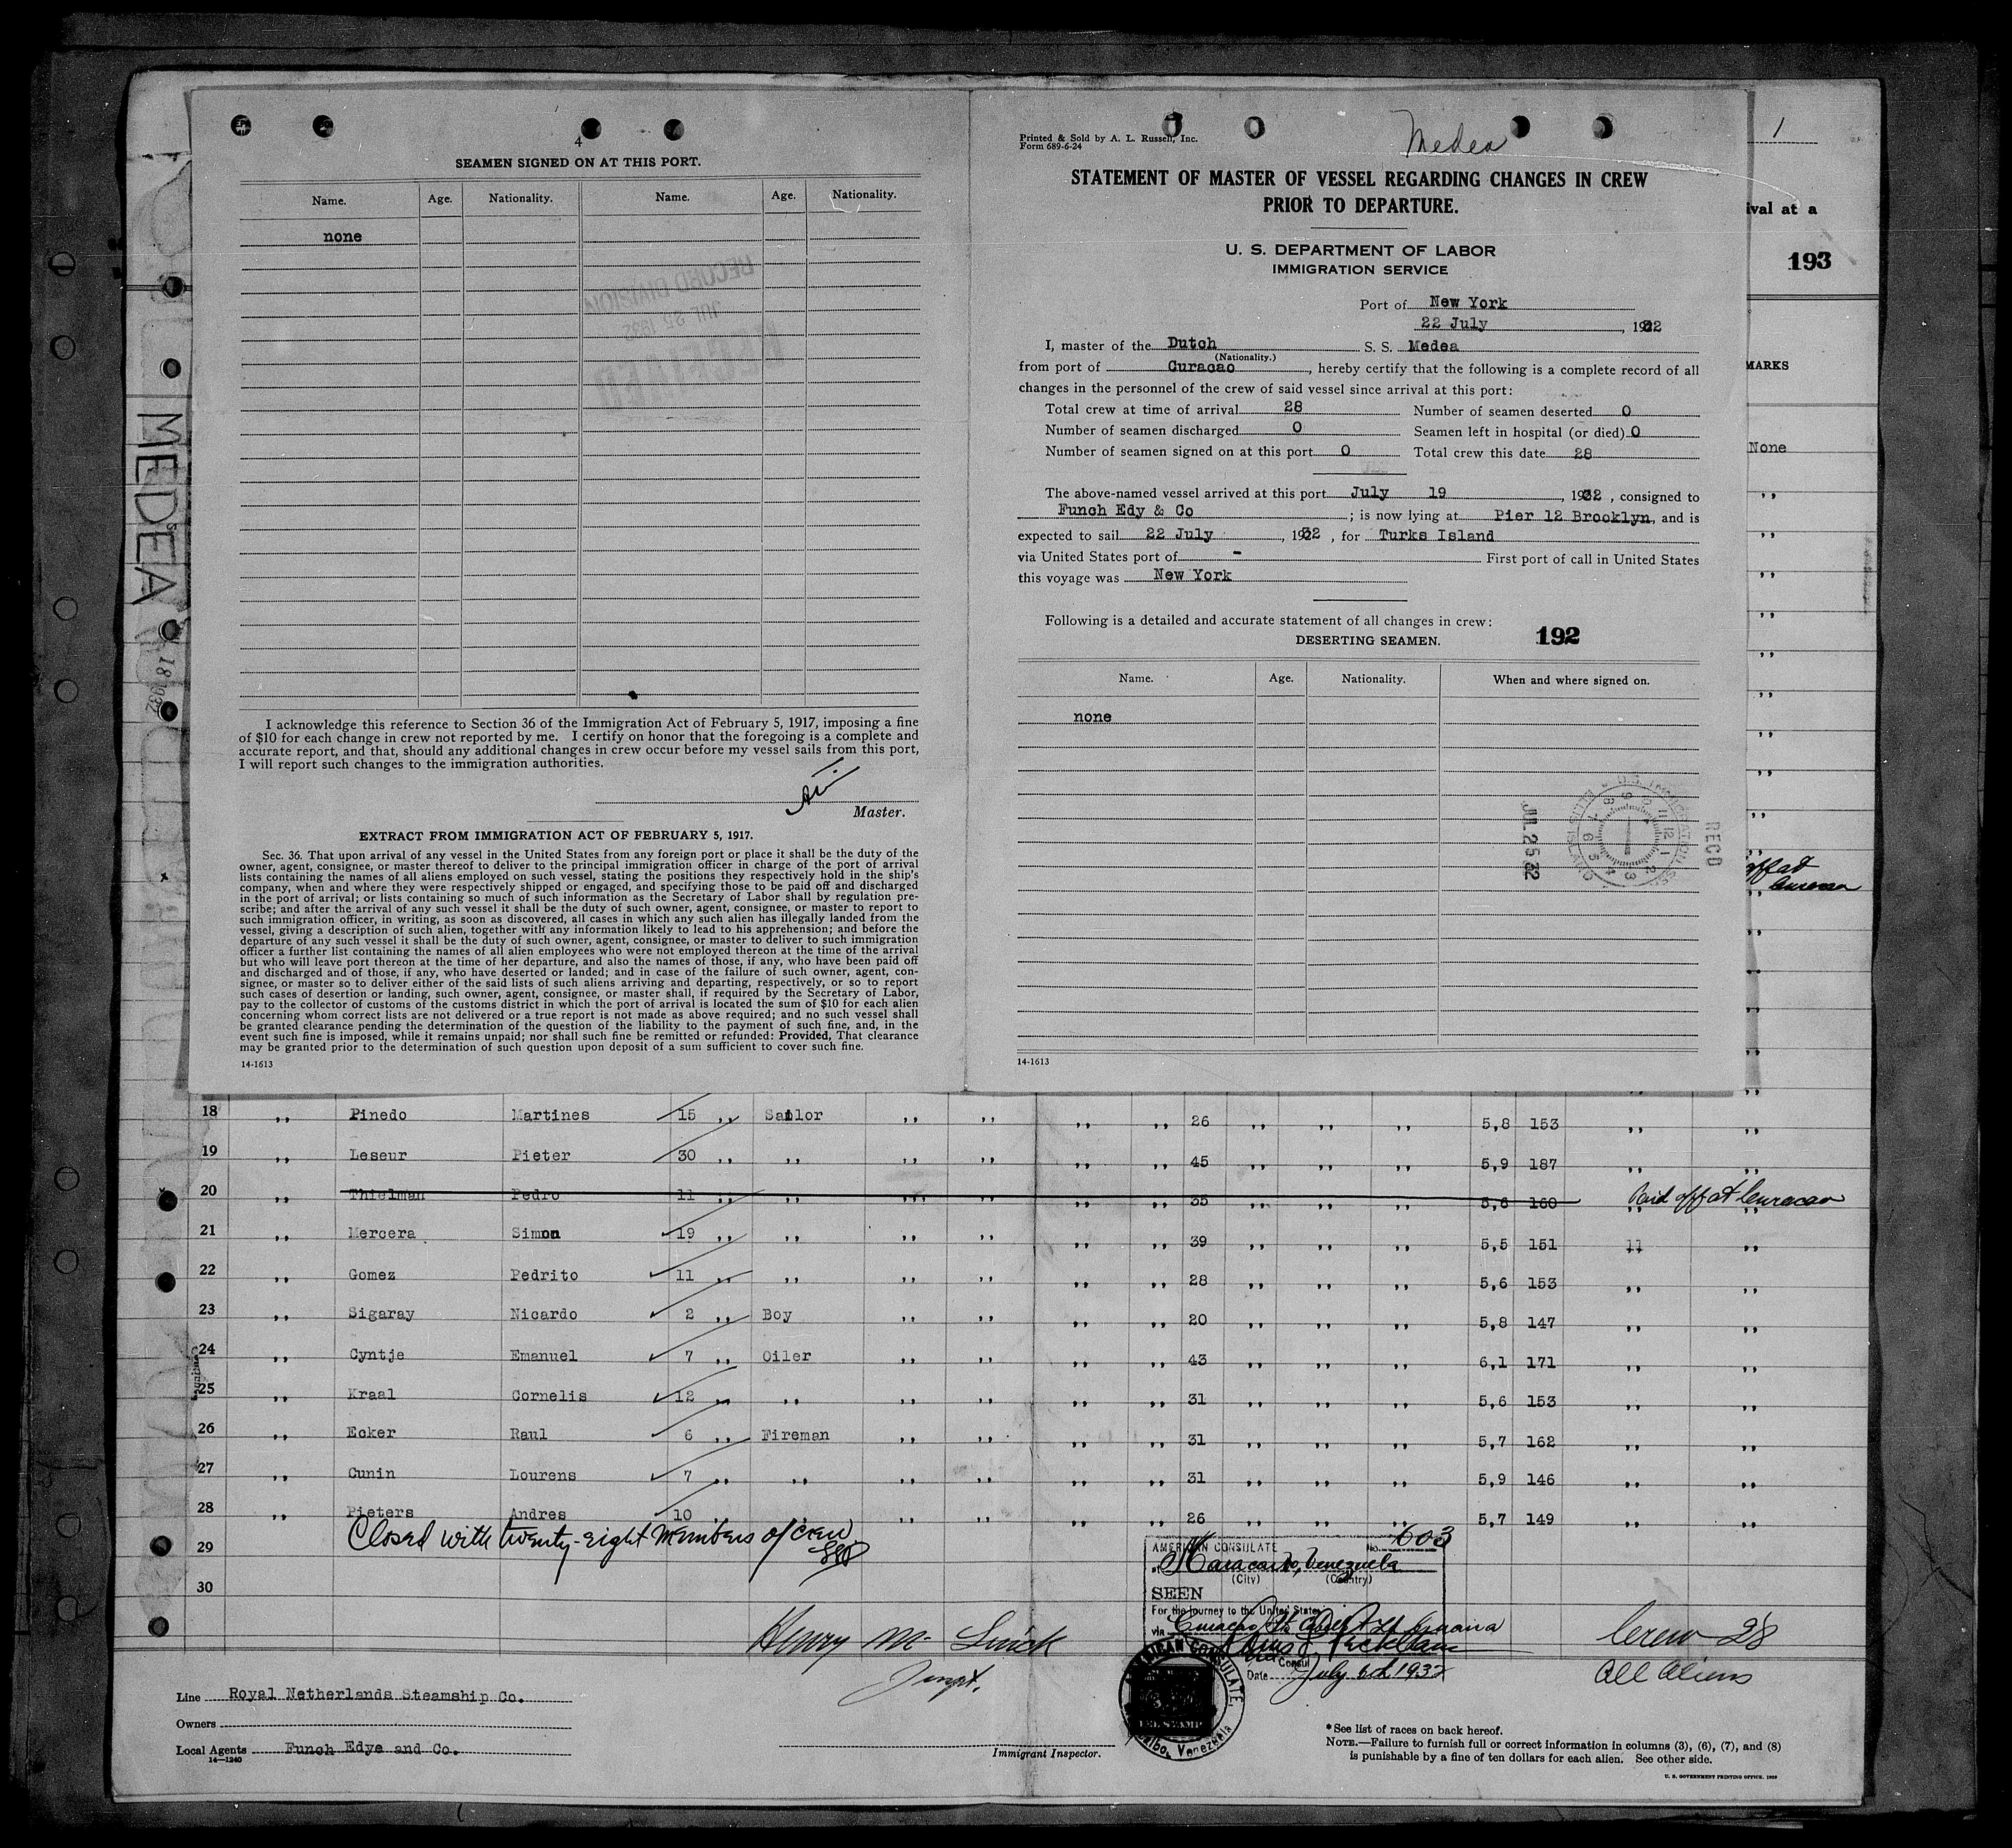 4
SEAMEN SIGNED ON AT THIS PORT.
Name. Age. Nationality. Name. Age. Nationality.
none
RECORD DIVISION
JUL 25 1932
RECEIVED
I acknowledge this reference to Section 36 of the Immigration Act of February 5, 1917, imposing a fine
of $10 for each change in crew not reported by me. I certify on honor that the foregoing is a complete and
accurate report, and that, should any additional changes in crew occur before my vessel sails from this port,
I will report such changes to the immigration authorities.
Master.
EXTRACT FROM IMMIGRATION ACT OF FEBRUARY 5, 1917.
Sec. 36. That upon arrival of any vessel in the United States from any foreign port or place it shall be the duty of the
owner, agent, consignee, or master thereof to deliver to the principal immigration officer in charge of the port of arrival
lists containing the names of all aliens employed on such vessel, stating the positions they respectively hold in the ship's
company, when and where they were respectively shipped or engaged, and specifying those to be paid off and discharged
in the port of arrival; or lists containing so much of such information as the Secretary of Labor shall by regulation pre-
scribe; and after the arrival of any such vessel it shall be the duty of such owner, agent, consignee, or master to report to
such immigration officer, in writing, as soon as discovered, all cases in which any such alien has illegally landed from the
vessel, giving a description of such alien, together with any information likely to lead to his apprehension; and before the
departure of any such vessel it shall be the duty of such owner, agent, consignee, or master to deliver to such immigration
officer a further list containing the names of all alien employees who were not employed thereon at the time of the arrival
but who will leave port thereon at the time of her departure, and also the names of those, if any, who have been paid off
and discharged and of those, if any, who have deserted or landed; and in case of the failure of such owner, agent, con-
signee, or master so to deliver either of the said lists of such aliens arriving and departing, respectively, or so to report
such cases of desertion or landing, such owner, agent, consignee, or master shall, if required by the Secretary of Labor,
pay to the collector of customs of the customs district in which the port of arrival is located the sum of $10 for each alien
concerning whom correct lists are not delivered or a true report is not made as above required; and no such vessel shall
be granted clearance pending the determination of the question of the liability to the payment of such fine, and, in the
event such fine is imposed, while it remains unpaid; nor shall such fine be remitted or refunded: Provided, That clearance
may be granted prior to the determination of such question upon deposit of a sum sufficient to cover such fine.
14-1613
Printed & Sold by A. L. Russell, Inc.
Form 689-6-24
Medea
STATEMENT OF MASTER OF VESSEL REGARDING CHANGES IN CREW
PRIOR TO DEPARTURE.
U. S. DEPARTMENT OF LABOR
IMMIGRATION SERVICE
Port of New York
22 July, 1932
I, master of the Dutch S. S. Medea
(Nationality.)
from port of Curacao, hereby certify that the following is a complete record of all
changes in the personnel of the crew of said vessel since arrival at this port:
Total crew at time of arrival 28 Number of seamen deserted 0
Number of seamen discharged 0 Seamen left in hospital (or died) 0
Number of seamen signed on at this port 0 Total crew this date 28
The above-named vessel arrived at this port July 19, 1932, consigned to
Funch Edy & Co; is now lying at Pier 12 Brooklyn, and is
expected to sail 22 July, 1932, for Turks Island
via United States port of - First port of call in United States
this voyage was New York
Following is a detailed and accurate statement of all changes in crew:
DESERTING SEAMEN. 192
Name. Age. Nationality. When and where signed on.
none
JUL 25 32
REC'D
14-1613
1
ival at a
193
MARKS
None
off at
Curacao
MEDEA
18 1932
18 ,, Pinedo Martines 15 ,, Sailor ,, ,, ,, ,, 26 ,, ,, ,, 5,8 153 ,, ,,
19 ,, Leseur Pieter 30 ,, ,, ,, ,, ,, ,, 45 ,, ,, ,, 5,9 187 ,, ,,
20 ,, Thielman Pedro 11 ,, ,, ,, ,, ,, ,, 35 ,, ,, ,, 5,6 160 Paid off at Curacao
21 ,, Mercera Simon 19 ,, ,, ,, ,, ,, ,, 39 ,, ,, ,, 5,5 151 ,, ,,
22 ,, Gomez Pedrito 11 ,, ,, ,, ,, ,, ,, 28 ,, ,, ,, 5,6 153 ,, ,,
23 ,, Sigaray Nicardo 2 ,, Boy ,, ,, ,, ,, 20 ,, ,, ,, 5,8 147 ,, ,,
24 ,, Cyntje Emanuel 7 ,, Oiler ,, ,, ,, ,, 43 ,, ,, ,, 6,1 171 ,, ,,
25 ,, Kraal Cornelis 12 ,, ,, ,, ,, ,, ,, 31 ,, ,, ,, 5,6 153 ,, ,,
26 ,, Ecker Raul 6 ,, Fireman ,, ,, ,, ,, 31 ,, ,, ,, 5,7 162 ,, ,,
27 ,, Cunin Lourens 7 ,, ,, ,, ,, ,, ,, 31 ,, ,, ,, 5,9 146 ,, ,,
28 ,, Pieters Andres 10 ,, ,, ,, ,, ,, ,, 26 ,, ,, ,, 5,7 149 ,, ,,
29 Closed with twenty-eight members of crew
30
AMERICAN CONSULATE No. 603
at Maracaibo, Venezuela
(City) (Country)
SEEN
For the journey to the United States
via Curacao
Consul
Date July 6th 1932
AMERICAN CONSULATE, Maracaibo, Venezuela
Henry M. Quick
Crew 28
All Aliens
Line Royal Netherlands Steamship Co.
Owners
Local Agents Funch Edye and Co.
14-1240
Immigrant Inspector.
*See list of races on back hereof.
NOTE.—Failure to furnish full or correct information in columns (3), (6), (7), and (8)
is punishable by a fine of ten dollars for each alien. See other side.
U. S. GOVERNMENT PRINTING OFFICE. 1929